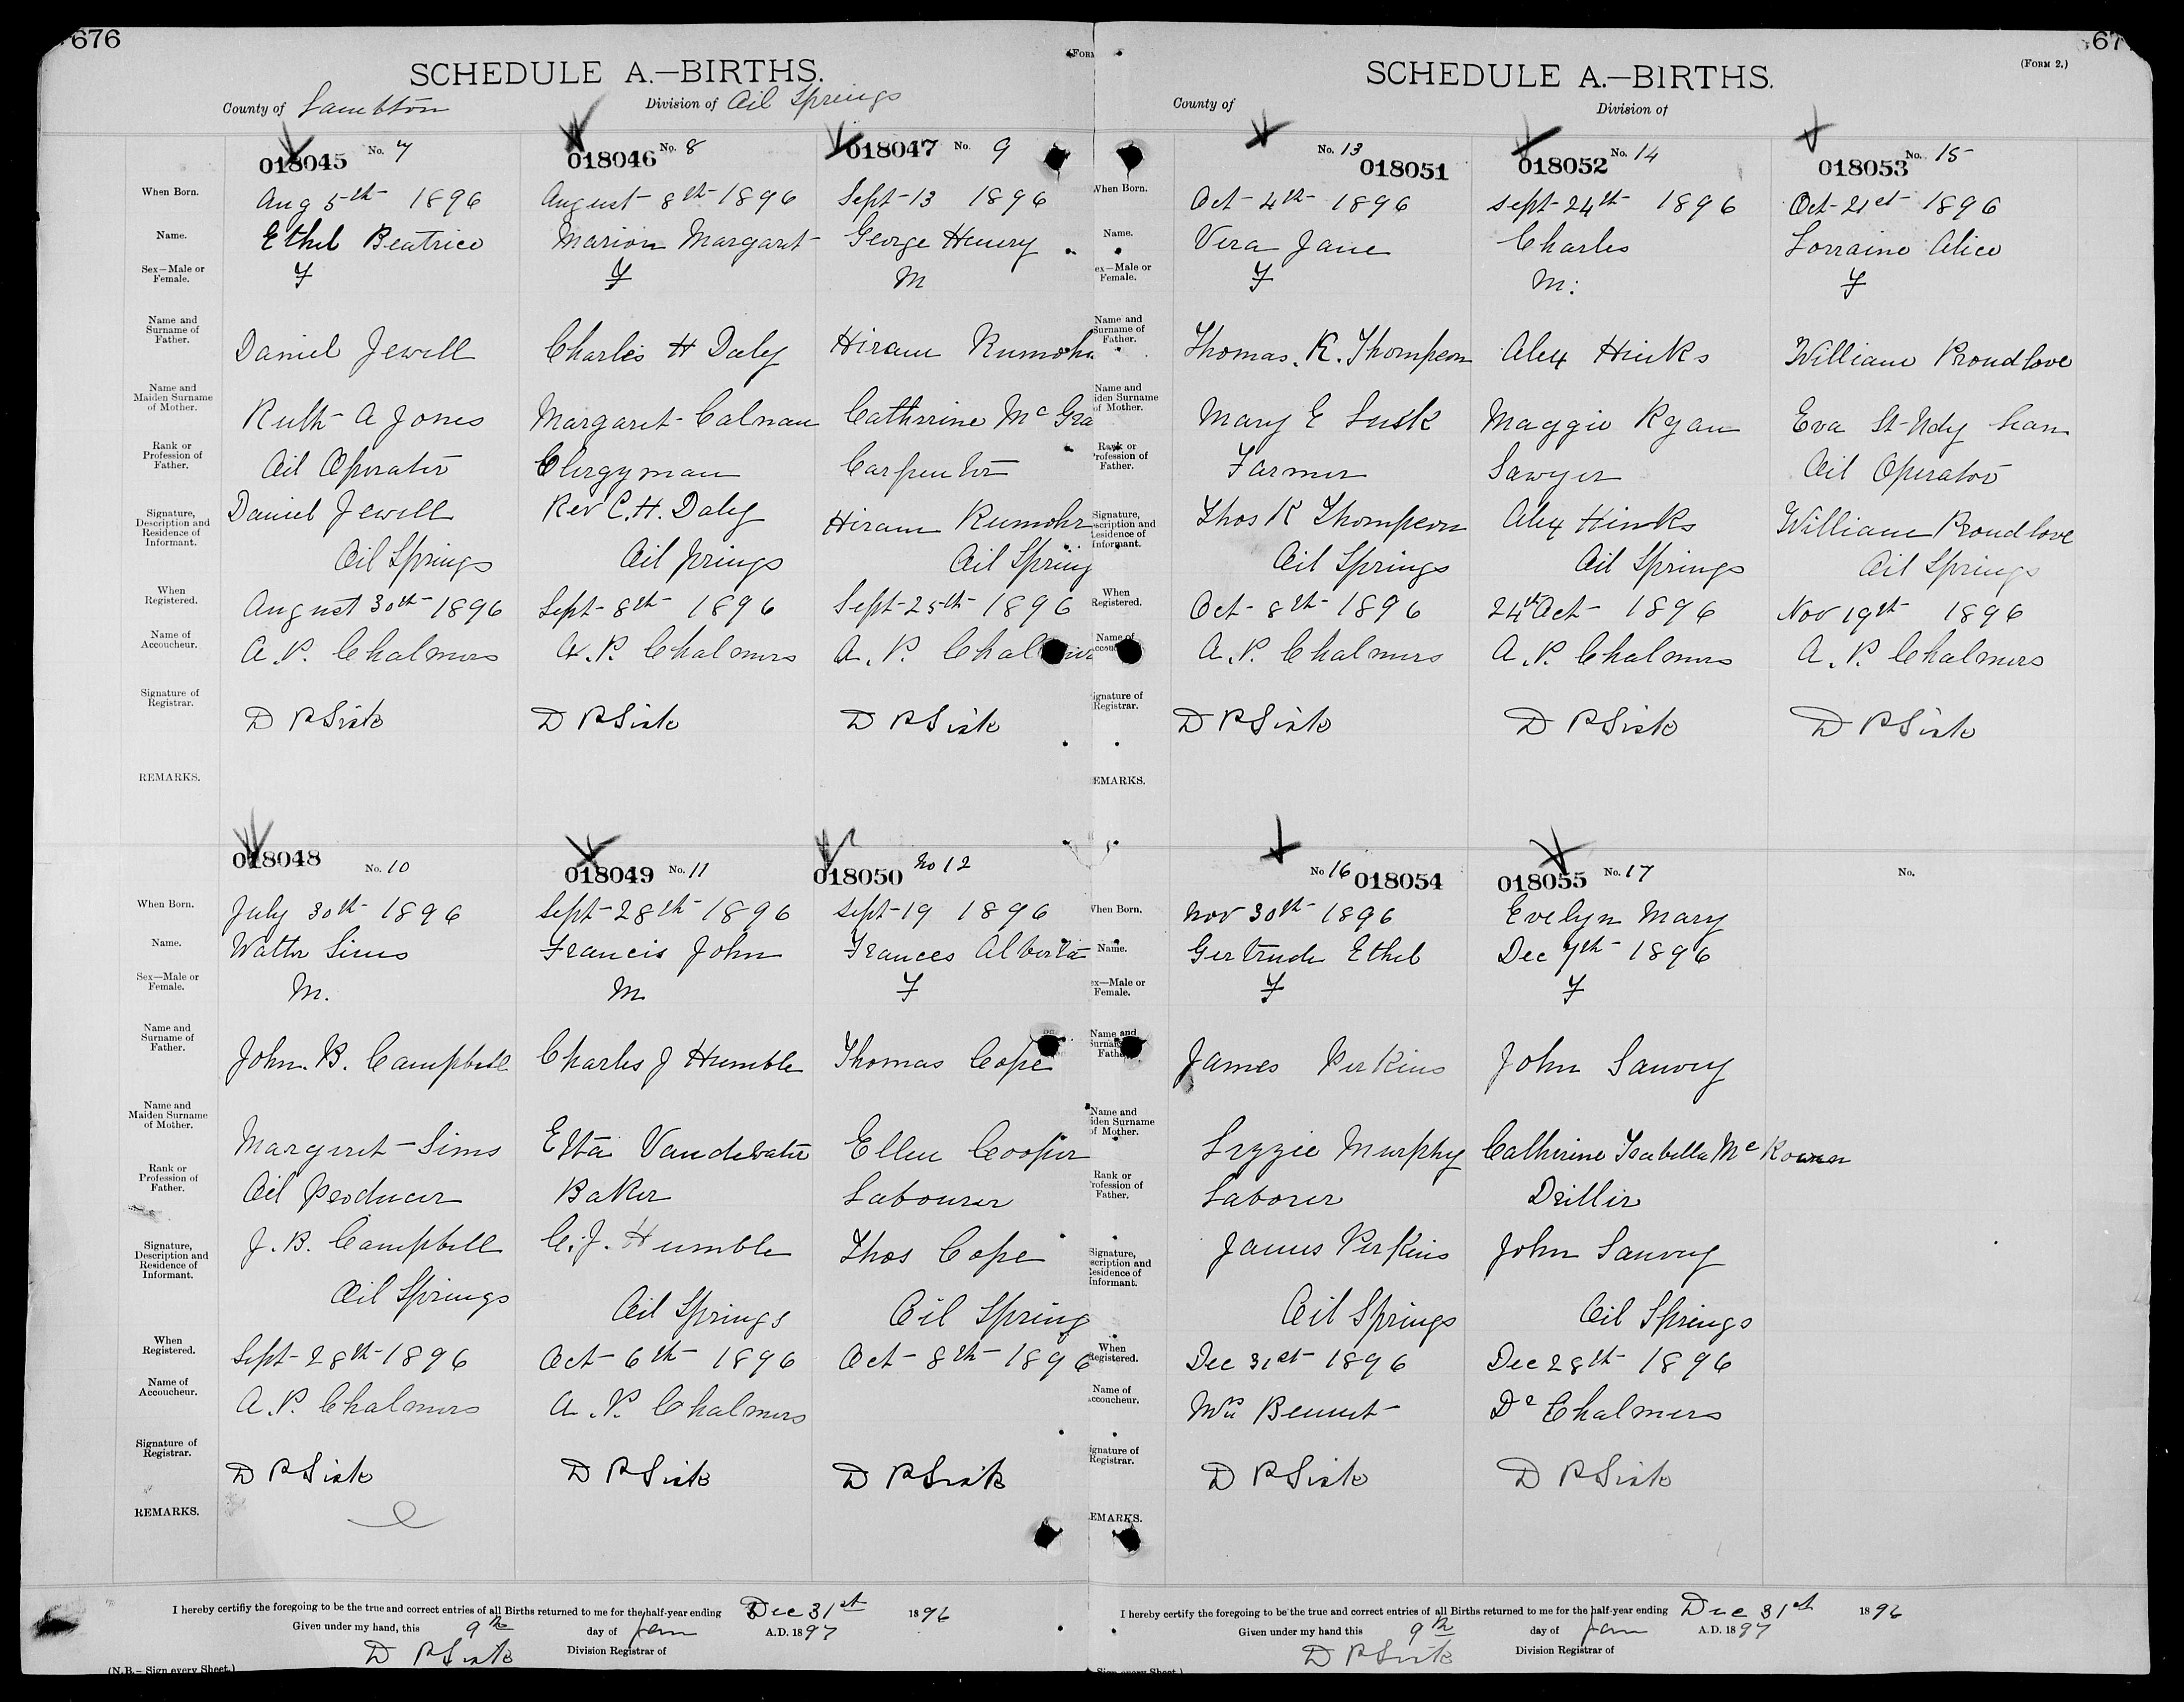 676
(Form
SCHEDULE A.—BIRTHS.
County of Lambton Division of Oil Springs
018045 No. 7 018046 No. 8 018047 No. 9
When Born. Aug 5th 1896 August 8th 1896 Sept 13 1896
Name. Ethel Beatrice Marion Margaret George Henry
Sex—Male or Female. F F M
Name and Surname of Father. Daniel Jewell Charles H Daly Hiram Rumohr
Name and Maiden Surname of Mother. Ruth A Jones Margaret Calnan Cathrine McGra
Rank or Profession of Father. Oil Operator Clergyman Carpenter
Signature, Description and Residence of Informant. Daniel Jewell Rev C. H. Daly Hiram Rumohr
Oil Springs Oil Springs Oil Spring
When Registered. August 30th 1896 Sept 8th 1896 Sept 25th 1896
Name of Accoucheur. A. P. Chalmers A. P. Chalmers A. P. Chalmers
Signature of Registrar. D P Sisk D P Sisk D P Sisk
REMARKS.
018048 No. 10 018049 No. 11 018050 No 12
When Born. July 30th 1896 Sept 28th 1896 Sept 19 1896
Name. Walter Sims Francis John Frances Alberta
Sex—Male or Female. M. M F
Name and Surname of Father. John. B. Campbell Charles J Humble Thomas Cope
Name and Maiden Surname of Mother. Margaret Sims Etta Vandewater Ellen Cooper
Rank or Profession of Father. Oil Producer Baker Labourer
Signature, Description and Residence of Informant. J. B. Campbell C. J. Humble Thos Cope
Oil Springs Oil Springs Oil Spring
When Registered. Sept 28th 1896 Oct 6th 1896 Oct 8th 1896
Name of Accoucheur. A. P. Chalmers A. P. Chalmers
Signature of Registrar. D P Sisk D P Sisk D P Sisk
REMARKS.
I hereby certifiy the foregoing to be the true and correct entries of all Births returned to me for the half-year ending Dec 31st 1896
Given under my hand, this 9th day of Jan A.D. 1897
D P Sisk Division Registrar of
(N.B.—Sign every Sheet.)
67
(Form 2.)
SCHEDULE A.—BIRTHS.
County of Division of
No. 13 018051 018052 No. 14 018053 No. 15
When Born. Oct 4th 1896 Sept 24th 1896 Oct 21st 1896
Name. Vera Jane Charles Lorraine Alice
ex—Male or Female. F M: F
Name and Surname of Father. Thomas. K. Thompson Alex Hinks William Proudlove
Name and iden Surname of Mother. Mary E Lusk Maggie Ryan Eva St
Rank or rofession of Father. Farmer Sawyer Oil Operator
Signature, scription and esidence of Informant. Thos K Thompson Alex Hinks William Proudlove
Oil Springs Oil Springs Oil Springs
When Registered. Oct 8th 1896 24th Oct 1896 Nov 19st 1896
Name of A. P. Chalmers A. P. Chalmers A. P. Chalmers
ignature of Registrar. D P Sisk D P Sisk D P Sisk
EMARKS.
No 16 018054 018055 No. 17 No.
When Born. Nov 30th 1896 Evelyn Mary
Name. Gertrude Ethel Dec 7th 1896
ex—Male or Female. F F
Name and Surname of Father. James Perkins John Sanvey
Name and iden Surname of Mother. Lizzie Murphy Catherine Isabella McKowen
Rank or rofession of Father. Laborer Driller
Signature, scription and esidence of Informant. James Perkins John Sanvey
Oil Springs Oil Springs
When Registered. Dec 31st 1896 Dec 28th 1896
Name of ccoucheur. Mrs Bennet Dr Chalmers
ignature of Registrar. D P Sisk D P Sisk
EMARKS.
I hereby certify the foregoing to be the true and correct entries of all Births returned to me for the half-year ending Dec 31st 1896
Given under my hand this 9th day of Jan A.D. 1897
D P Sisk Division Registrar of
Sign every Sheet.)